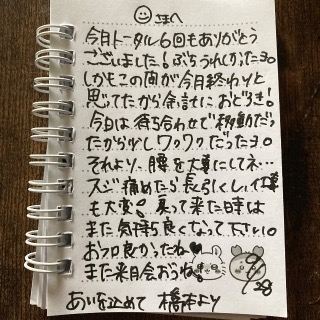 さまへ
今月トータル6回もありがとう
ございました!ぶちうれしかったヨo
しかもこの間が今月終わりと
思ってたから余計におどろき!
今日は待ち合わせで移動だっ
たから少しワクワクだったヨo
それより、腰を大事にしてネ…
スジ痛めたら長引くしぃ仕事
も大変!戻って来た時は
また気持ち良くなって下さいo
おフロ良かったね♥
また来月会おうね!
9/28
あいを込めて 橋本より